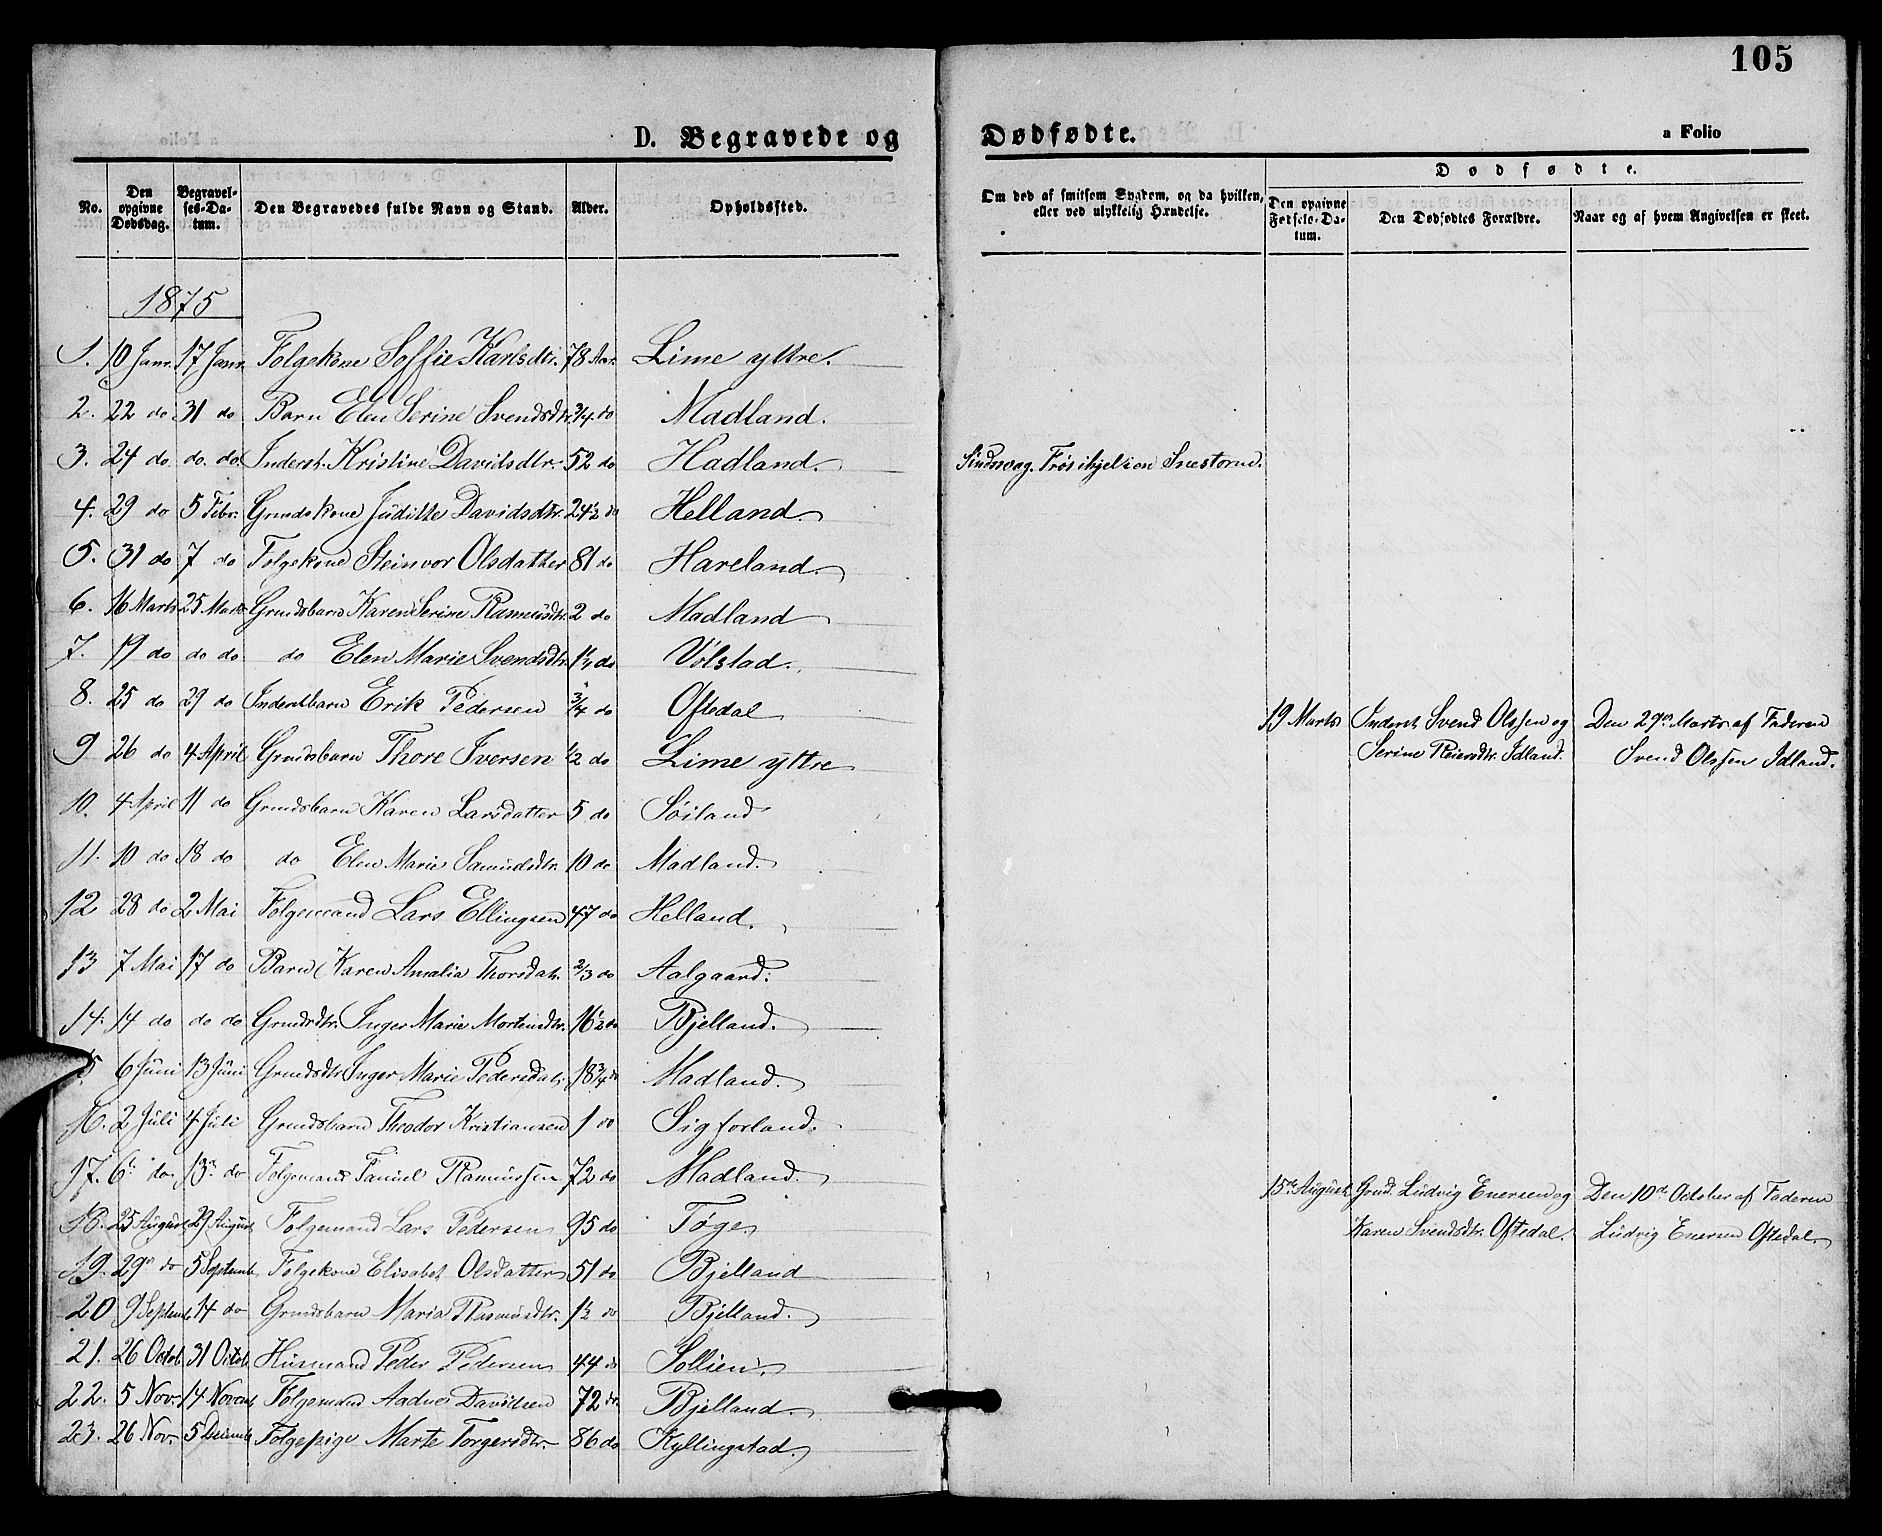 105
D. Begravede og Dødfødte.
a Folio
No. Den opgivne Dødsdag. Begravelses-Datum. Den Begravedes fulde Navn og Stand. Alder. Opholdssted. Om død af smitsom Sygdom, og da hvilken, eller ved ulykkelig Hændelse. Dødfødte. Den opgivne Fødsels-Datum. Den Dødfødtes Forældre. Naar og af hvem Angivelsen er skeet.
1875
1. 10 Janr. 17 Janr. Folgekone Soffie Karlsdtr. 78 Aar. Lime yttre.
2. 22 do 31 do Barn Elen Serine Svendsdtr. 3/4 do Madland.
3. 24 do. do. do. Inderst. Kristine Davidsdtr. 52 do Hadland. Sindssvag. Frøs ihjel i en Snestorm.
4. 29 do 5 Febr. Grmdskone Juditte Davidsdtr. 24 1/2 do Helland.
5. 31 do 7 do Folgekone Steinvor Olsdatter 81 do Haveland.
6. 16 Marts 25 Marts Grmdsbarn Karen Serine Rasmusdtr. 2 do Madland
7. 19 do do do do Elen Marie Svendsdtr. 1 1/3 do Vølstad.
8. 25 do 29 do Inderstbarn Erik Pedersen 3/4 do Oftedal 19 Marts Inderst. Svend Olssen og Den 29de Marts af Faderen
9 26 do 4 April Grmdsbarn Thore Iversen 1/2 do Lime yttre Serine Reiersdtr. Idland. Svend Olssen Idland.
10. 4 April 11 do Grmdsbarn Karen Larsdatter 5 do Søiland
11. 10 do 18 do do Elen Marie Samuelsdtr. 10 do Madland.
12 28 do 2 Mai Folgemand Lars Ellingsen 47 do Helland.
13 7 Mai 17 do Barn Karen Amalia Thorsdatr. 2/3 do Aalgaard.
14. 14 do do do Grmdsdtr. Inger Marie Mortensdtr. 16 1/2 do Bjelland.
15 6 Juni 13 Juni Grmdsdtr. Inger Marie Pedersdatr. 18 3/4 do Madland.
16. 2 Juli 4 Juli Grmdsbarn Theodor Kristiansen 1 do Sigforland.
17. 6 do 13 do Folgemand Rasmussen 72 do Madland. 15de August Grmd. Ludvig Enersen og Den 10de October af Faderen
18. 25 August 29 August Folgemand Lars Pedersen 95 do Tøge Karen Svendsdtr. Oftedal. Ludvig Enersen Oftedal.
19. 29 do 5 Septemb. Folgekone Elisabet Olsdatter 51 do Bjelland
20 9 Septemb. 14 do Grmdsbarn Maria Rasmusdtr. 1 1/2 do Bjelland.
21. 26 Octob. 31 Octob. Husmand Peder Pedersen 44 do Sollien.
22. 5 Nov. 14 Novemb. Folgemand Aadne Davidsen 72 do. Bjelland.
23. 26 Nov. 5 Decemb. Folgepige Marte Torgersdtr. 86 do Kyllingstad.